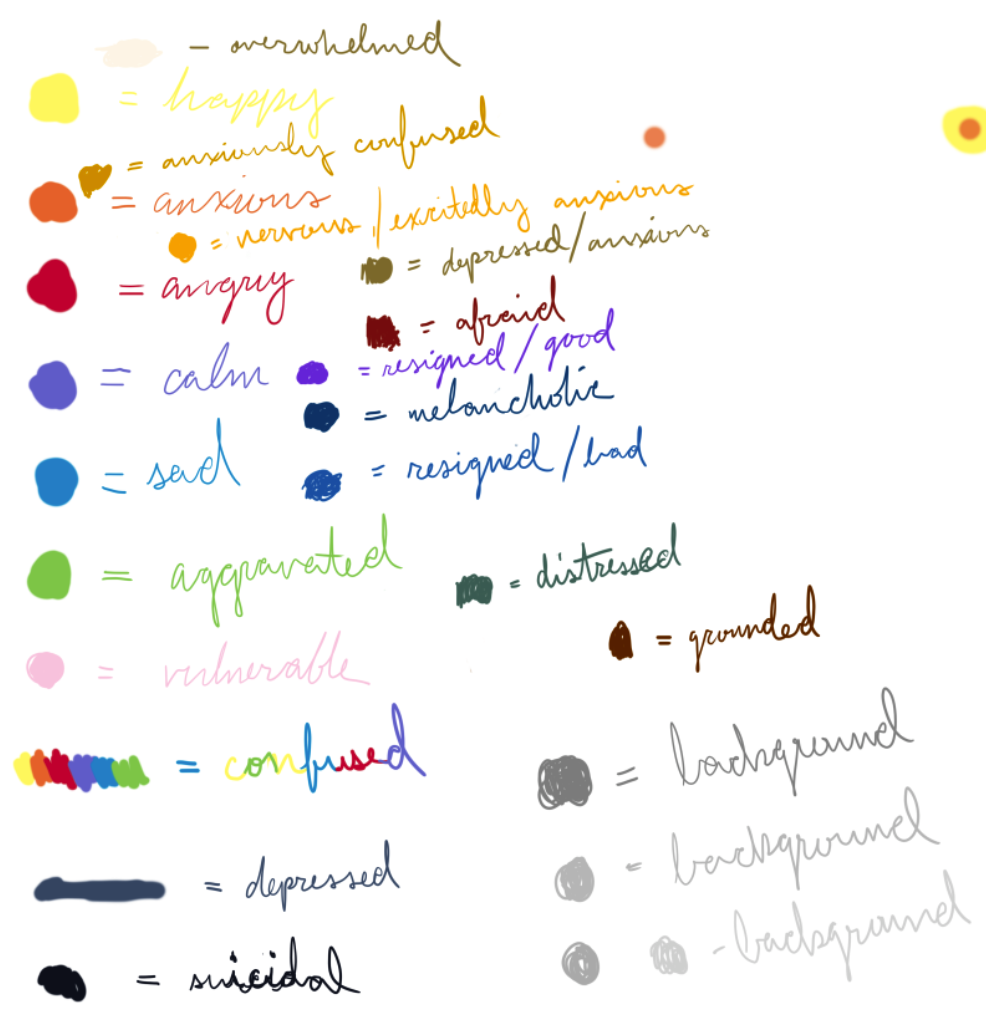 - overwhelmed
= happy
= anxiously confused
= anxious
= nervous / excitedly anxious
= depressed/anxious
= angry
= afraid
= calm
= resigned / good
= melancholic
= sad
= resigned / bad
= aggravated
= distressed
= grounded
= vulnerable
= confused
= background
= background
= depressed
- background
= suicidal